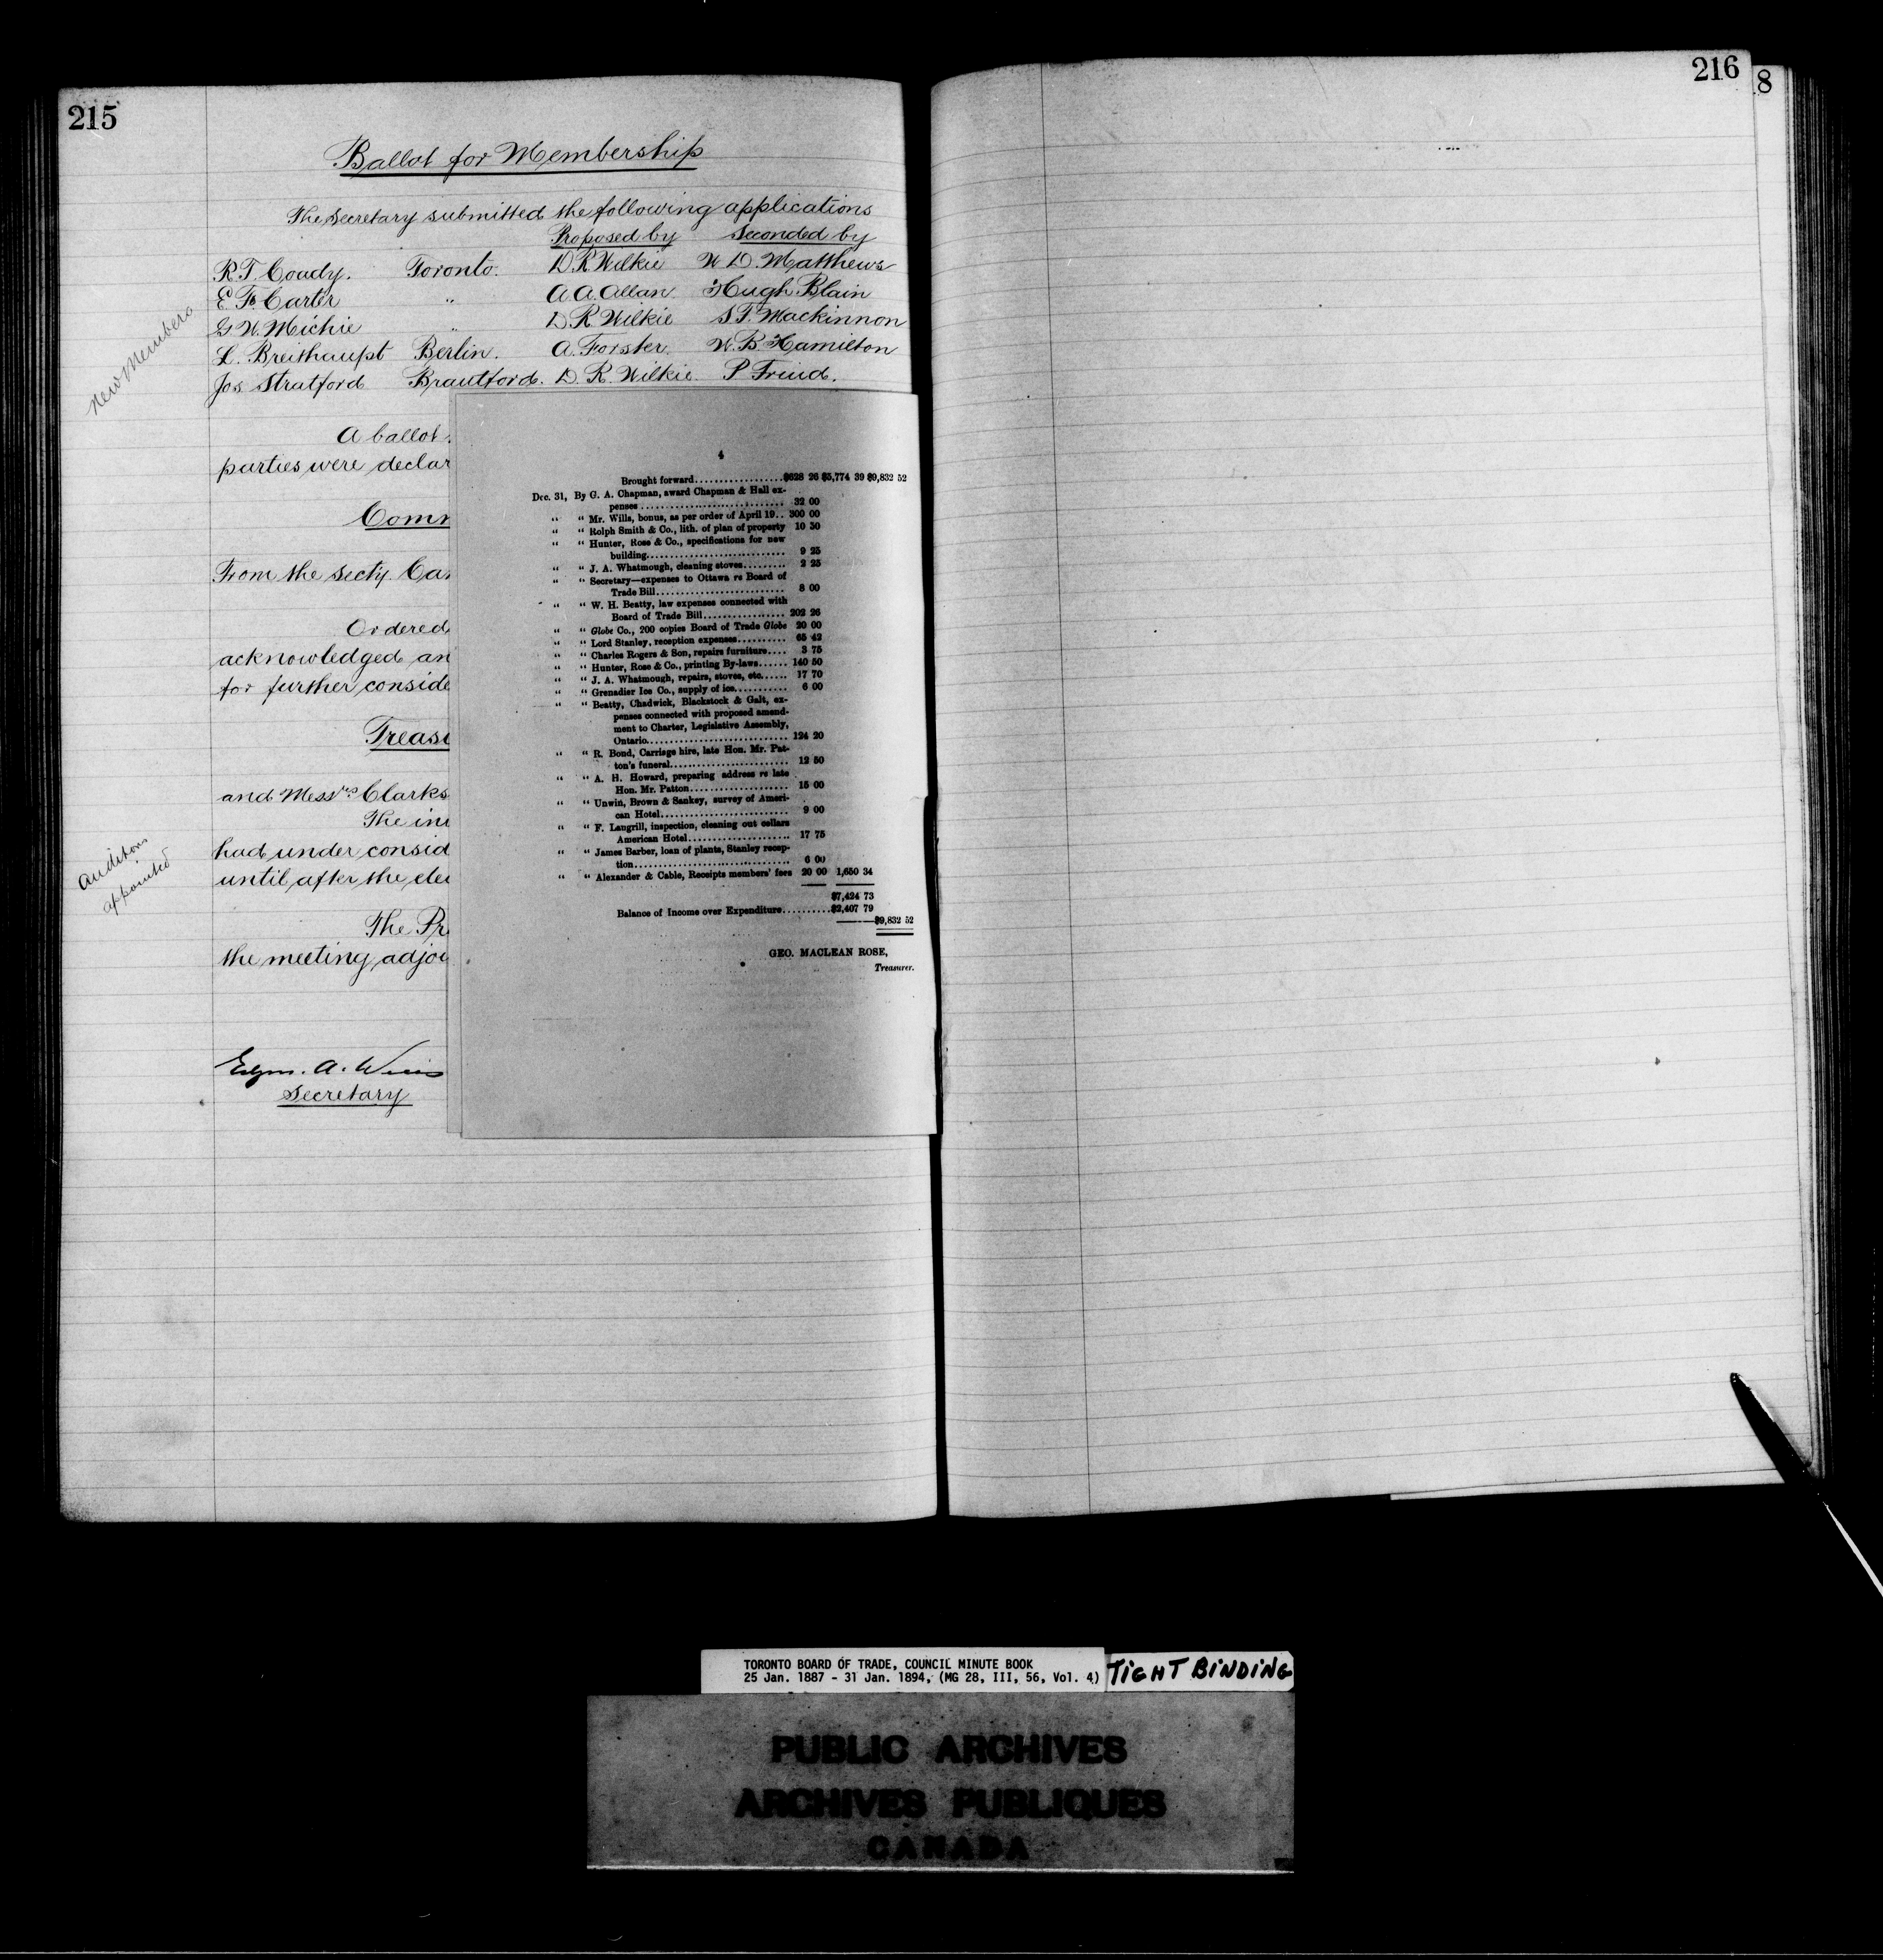 215
Ballot for Membership
The Secretary submitted the following applications
Proposed by Seconded by
R. T. Coady. Toronto. D. R. Wilkie W. D. Matthews
E. F. Carter " A. A. Allan Hugh Blain
G. W. Michie " D. R. Wilkie S. F. Mackinnon
L. Breithaupt Berlin. A. Forster W. B. Hamilton
Jos Stratford Brantford. D. R. Wilkie P Freud.
New Members
A ballot
parties were declar
Comm
From the Secty. Ca
Ordered
acknowledged an
for further conside
Treasu
and Messrs Clarks
The in
had under consid
until after the ele
Auditors
appointed
The Pre
the meeting adjo
Edgar A. Wills
Secretary
4
Brought forward..................$628 26 $5,774 39 $9,832 52
Dec. 31, By G. A. Chapman, award Chapman & Hall ex-
penses ............................ 32 00
" " Mr. Wills, bonus, as per order of April 19.. 300 00
" " Rolph Smith & Co., lith. of plan of property 10 50
" " Hunter, Rose & Co., specifications for new
building............................ 9 25
" " J. A. Whatmough, cleaning stoves......... 2 25
" " Secretary—expenses to Ottawa re Board of
Trade Bill.......................... 8 00
" " W. H. Beatty, law expenses connected with
Board of Trade Bill................. 202 26
" " Globe Co., 200 copies Board of Trade Globe 20 00
" " Lord Stanley, reception expenses.......... 65 42
" " Charles Rogers & Son, repairs furniture.... 3 75
" " Hunter, Rose & Co., printing By-laws...... 140 50
" " J. A. Whatmough, repairs, stoves, etc...... 17 70
" " Grenadier Ice Co., supply of ice........... 6 00
" " Beatty, Chadwick, Blackstock & Galt, ex-
penses connected with proposed amend-
ment to Charter, Legislative Assembly,
Ontario............................ 124 20
" " R. Bond, Carriage hire, late Hon. Mr. Pat-
ton's funeral........................ 12 50
" " A. H. Howard, preparing address re late
Hon. Mr. Patton.................... 15 00
" " Unwin, Brown & Sankey, survey of Ameri-
can Hotel.......................... 9 00
" " F. Langrill, inspection, cleaning out cellars
American Hotel..................... 17 75
" " James Barber, loan of plants, Stanley recep-
tion................................ 6 00
" " Alexander & Cable, Receipts members' fees 20 00 1,650 34
$7,424 73
Balance of Income over Expenditure..........$2,407 79
$9,832 52
GEO. MACLEAN ROSE,
Treasurer.
216
8
TORONTO BOARD OF TRADE, COUNCIL MINUTE BOOK
25 Jan. 1887 - 31 Jan. 1894, (MG 28, III, 56, Vol. 4)
TIGHT BINDING
PUBLIC ARCHIVES
ARCHIVES PUBLIQUES
CANADA